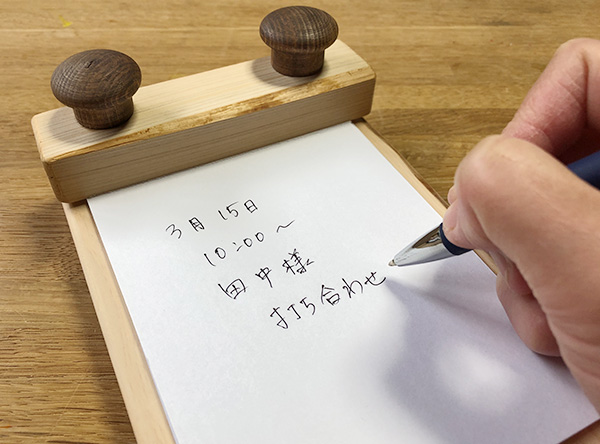 3月15日
10:00～
田中様
打ち合わせ